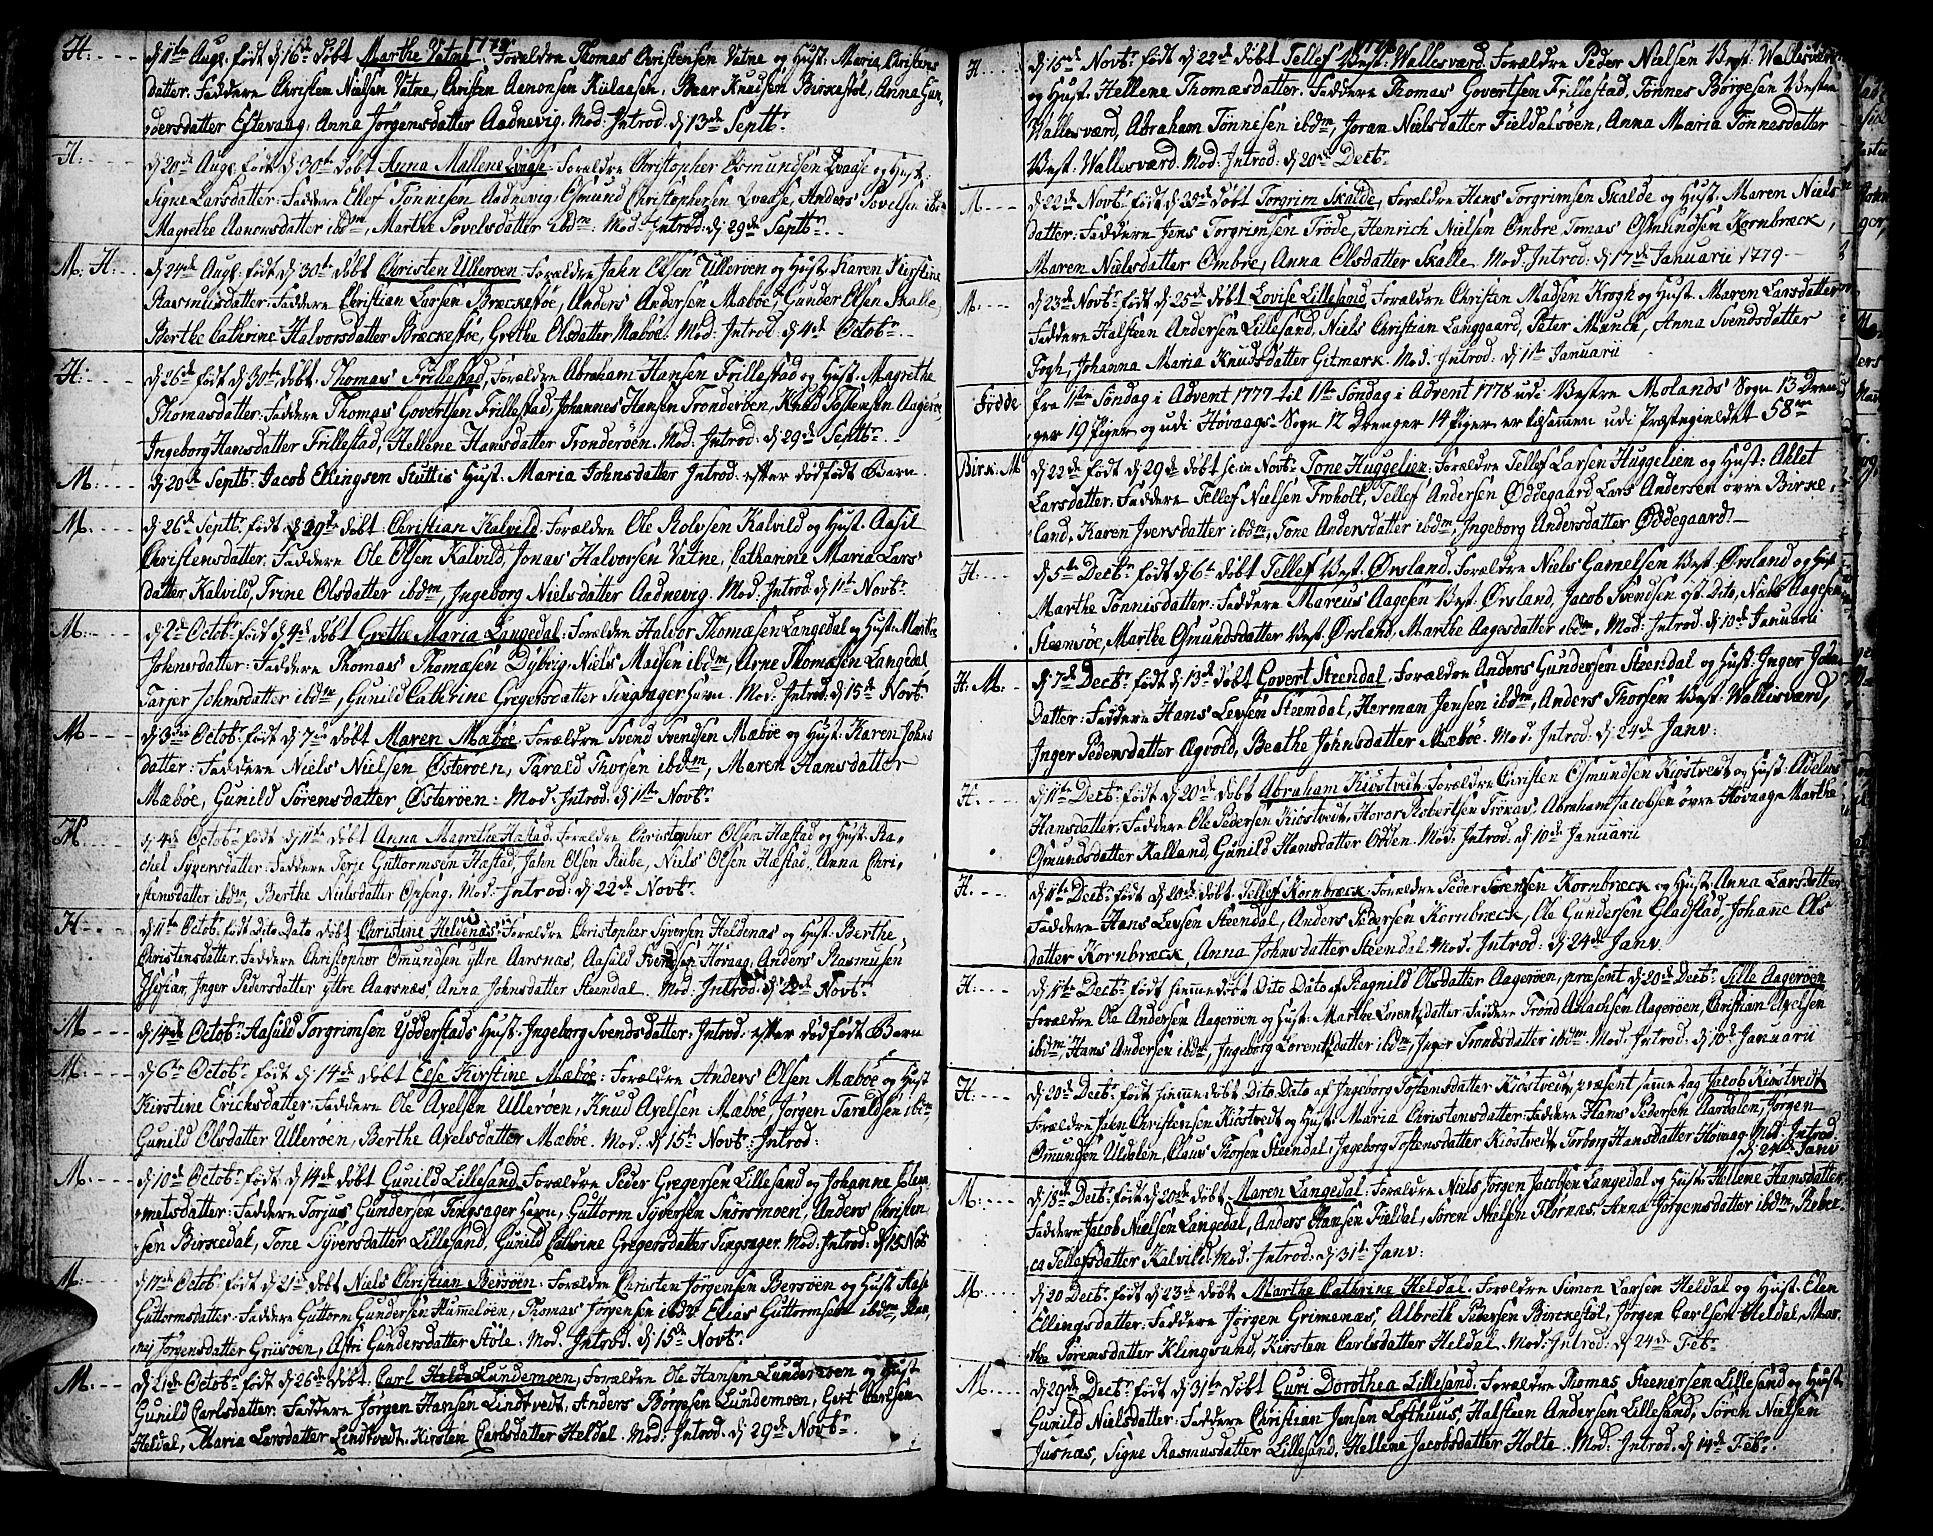 1778
H. d. 11te Aug. født d. 16de døbt Marthe Vatne. Forældre Thomas Christensen Vatne og Hust: Maria Christens
datter: Faddere Christen Nielsen Vatne, Christen Aenonsen Birkestøl, Anna Gun
dersdatter Eftevaag, Anna Jørgensdatter Aadnevig. Mod. Introd. d. 13de Septbr.
H. d. 20de Aug. født d. 30te døbt Anna Mallene. Forældre Christopher Osmundsen og Hust:
Signe Larsdatter: Faddere Ellef Tønnisen Aadnevig, Osmund Christophersen, Anders Tovelsen ibm
Magrethe Aanensdatter ibdm, Marthe Povelsdatter ibdm: Mod: Introd: d. 29de Septbr.
M. H. d. 24de Aug. født d. 30te døbt Christen Ulleroen: Forældre Jahn Olsen Ulleroen og Hust: Karen Kirstine
Rasmusdatter: Faddere Christian Larsen Bræckestøe, Anders Andersen Mæbøe, Gunder Olsen Skalle,
Berthe Cathrine Halvorsdatter Bræckestøe, Grethe Olsdatter Mæbøe. Mod: Introd. d. 4de Octobr.
H. d. 26de født d. 30te døbt Thomas Frillestad, Forældre Abraham Hansen Frillestad og Hust: Magrethe
Thomasdatter: Faddere Thomas Govertsen Frillestad, Johannes Hansen Tronderøen, Knud Toftensen Aagerøe,
Ingeborg Hansdatter Frillestad, Hellene Hansdatter Tronderøen. Mod: Introd: d. 29de Septbr.
M. d. 20de Septbr. Jacob Ellingsen Hust. Maria Johnsdatter Introd. efter dødfødt Barn.
M. d. 26de Septbr. født d. 29de døbt Christian Kalvild: Forældre Ole Rolvsen Kalvild og Hust: Aasil
Christensdatter. Faddere Ole Olsen Kalvild, Jonas Halvorsen Vatne, Catharine Maria Lars
datter Kalvild, Trine Olsdatter ibdm, Ingeborg Nielsdatter Aadnevig. Mod: Introd: d. 11te Novbr.
M. d. 2de Octobr. født d. 4de døbt Grethe Maria Langedal: Forældre Halvor Thomæsen Langedal og Hust: Marthe
Johnsdatter: Faddere Thomas Thomæsen Dybvig, Niels Madsen ibdm, Arne Thomæsen Langedal,
Tarjer Johnsdatter ibdm, Gunild Cathrine Gregersdatter Tingsager Havn. Mod: Introd: d. 15de Novbr.
M. d. 3die Octobr. født d. 7de døbt Maren Mæbøe: Forældre Svend Svendsen Mæbøe og Hust: Karen Johns
datter: Faddere Niels Nielsen Østeroen, Tarald Thorsen ibdm, Maren Hansdatter
Mæbøe, Gunild Sørensdatter Østerøen: Mod: Introd: d. 11te Novbr.
H. d. 4de Octobr. født d. 11te døbt Anna Magrethe Hæstad. Forældre Christopher Olsen Hæstad og Hust: Ra-
chel Syversdatter: Faddere Terje Guttormsen Hæstad, Jahn Olsen Rube, Niels Olsen Hæstad, Anna Chri-
stensdatter ibdm, Berthe Nielsdatter Opseng. Mod: Introd: d. 22de Novbr.
H. d. 11te Octob. født Dito Dato døbt Christine Heldenæs. Forældre Christopher Syversen Heldenæs og Hust: Berthe
Christensdatter. Faddere Christopher Omundsen yttre Aarsnæs, Aasuld Svendsen Høvaag, Anders Rasmusen
, Inger Pedersdatter yttre Aarsnæs, Anna Johnsdatter Steendal. Mod: Introd: d. 22de Novbr.
M. d. 14de Octobr. Aasuld Torgrimsen Hust. Ingeborg Svendsdatter: Introd: efter dødfødt Barn
M. d. 6te Octobr. født d. 14de døbt Else Kirstine Mæbøe: Forældre Anders Olsen Mæbøe og Hust
Kirstine Erichsdatter: Faddere Ole Axelsen Ullerøen, Knud Axelsen Mæbøe, Jørgen Taraldsen ibm
Gunild Olsdatter Ullerøen, Berthe Axelsdatter Mæbøe. Mod: d. 15te Novbr. Introd:
M. d. 10de Octobr. født d. 14de døbt Gunild Lillesand. Forældre Peder Gregersen Lillesand og Johanne Clem-
metsdatter: Faddere Torjus Gundersen Tingsager Havn, Guttorm Syversen, Anders Christen
sen Birkedal, Tone Syversdatter Lillesand, Gunild Cathrine Gregersdatter Tingsager. Mod: Introd: d. 15 Nov.
M. d. 17de Octobr. født d. 21de døbt Niels Christian Berøen: Forældre Christen Jørgensen Berøen og Hust. Aase
Guttormsdatter: Faddere Guttorm Gundersen Humeløen, Thomas Jørgensen ibdm, Elias Guttormsen ibdm, Ran
nej Jørgensdatter Griisøen, Astri Gundersdatter Støle. Mod: Introd. d. 15de Novbr.
M. d. 21de Octobr. født d. 26de døbt. Carl Lundemoen, Forældre Ole Hansen Lundemoen og Hust
Gunild Carlsdatter: Faddere Jørgen Hansen Lindtvedt, Anders Børgesen Lundemoen, Gert Carlsen
Heldal, Maria Larsdatter Lindtvedt, Kirsten Carlsdatter Heldal. Mod: Introd: d. 29de Novbr.
1778
H. d. 15de Novbr. født d. 22de døbt Tellef Vest: Wallesværd. Forældre Peder Nielsen Vest. Wallesværd
og Hust: Hellene Thomasdatter. Faddere Thomas Govertsen Frillestad, Tønnes Børgesen Vesten
Wallesværd, Abraham Tønnisen ibdm, Joran Nielsdatter Fieldalsøen, Anna Maria Tønnesdatter
Vest. Wallesværd. Mod: Introd: d. 20de Decbr.
M. d. 22de Novbr. født d. 29de døbt Torgrim Skalde, Forældre Hans Torgrimsen Skalde og Hust. Maren Niels
datter: Faddere Jens Torgrimsen Trøde, Henrich Nielsen Ombre, Tomas Osmundsen Kornbræck,
Maren Nielsdatter Ombre, Anna Olsdatter Skalle. Mod: Introd: d. 17de Januarii 1779.
M. d. 23de Novbr. født d. 25de døbt Lovise Lillesand, Forældre Christen Madsen Krogh og Hust: Maren Larsdatter
Faddere Halsteen Andersen Lillesand, Niels Christian Langgaard, Peter Munck, Anna Svendsdatter
Fogh, Johanna Maria Knudsdatter Gitmark. Mod: Introd: d. 11te Januarii
Fødde fra 1ste Søndag i Advent 1777 til 1ste Søndag i Advent 1778 udi Vestre Molands Sogn 13 Dren
ger 19 Piger og udi Høvaags Sogn 12 Drenger 14 Piger er tilsammen udi Præstegieldet 58
Birk: M. d. 22de født d. 29de døbt Novbr. Tone Huggelien: Forældre Tellef Larsen Huggelien og Hust: Ahlet
Larsdatter: Faddere Tellef Nielsen Froholt, Tellef Andersen Øddegaard, Lars Andersen øvre Birke-
land, Karen Iversdatter ibdm, Tone Andersdatter ibdm, Ingeborg Andersdatter Øddegaard.
H. d. 5te Decbr. født d. 6te døbt Tellef Vest. Ørsland. Forældre Niels Gamelsen Vest. Ørsland og Hust
Marthe Tønnisdatter: Faddere Marcus Aagesen Vest. Ørsland, Jacob Svendsen Dito, Niels Aagesen
Steensøe, Marthe Osmundsdatter Vest. Ørsland, Marthe Aagesdatter ibdm, Mod: Introd: d. 10de Januarii
H. M. d. 7de Decbr. født d. 13de døbt Govert Steendal, Forældre Anders Gundersen Steendal og Hust: Inger John
Datter: Faddere Hans Levsen Steendal, Herman Jensen ibdm, Anders Thorsen Vest. Wallisværd,
Inger Pedersdatter Ægvold, Beathe Johnsdatter Mæbøe. Mod: Introd: d. 24de Janv:
H. d. 11te Decbr. født d. 20de døbt Abraham Kiøstvedt: Forældre Christen Osmundsen Kiøstvedt og Hust: Adelus
Hansdatter: Faddere Ole Pedersen Kiøstvedt, Robertsen, Abraham Jacobsen øvre Høvaag, Marthe
Osmundsdatter Kalland, Gunild Hansdatter Odden. Mod: Introd: d. 10de Januarii
H. d. 11te Decbr. født d. 20de døbt. Tellef Kornbræck. Forældre Peder Sørensen Kornbræck og Hust: Anna Larsdatter
Faddere Hans Levsen Steendal, Anders Pedersen Kornbræck, Ole Gundersen Gladstad, Johane Ols
datter Kornbræck, Anna Johnsdatter Steendal. Mod: Introd: d. 24de Janv.
H. d. 11te Decbr. født hiemmedøbt Dito Dato af Ragnild Olsdatter Aagerøen, præsent d. 20de Decbr. Sille Aagerøen
Forældre Ole Andersen Aagerøen og Hust: Marthe Lorentzdatter: Faddere Trond Aslachsen Aagerøen, Christian Axelsen
ibdm, Hans Andersen ibdm, Ingeborg Lorentzdatter ibdm, Inger Trondsdatter ibdm. Mod: Introd. d. 10de Januarii
H. d. 20de Decbr. født hiemmedøbt Dito Dato af Ingeborg Toftensdatter Kiøstvedt, præsent samme Dag Jacob Kiøstvedt
Forældre Jahn Christensen Kiøstvedt og Hust: Maria Christensdatter: Faddere Hans Pedersen Aardalen, Jørgen
Omundsen Uldalen, Claus Thorsen Steendal, Ingeborg Toftensdatter Kiøstvedt, Torborg Hansdatter Høvaag. Mod: Introd.
d. 24de Janv
M. d. 18de Decbr. født d. 20de døbt Maren Langedal: Forældre Niels Jørgen Jacobsen Langedal og Hust: Hellene Hansdatter,
Faddere Jacob Nielsen Langedal, Anders Hansen Fieldal, Søren Nielsen Tiørnæs, Anna Jørgensdatter ibdm, Rebec-
ca Tellefsdatter Kalvild: Mod: Introd: d. 31te Janv:
M. d. 20 Decbr. født d. 23de døbt Marthe Cathrine Heldal. Forældre Simon Larsen Heldal og Hust. Elen
Ellingsdatter: Faddere Jørgen Grimenæs, Albreth Pedersen Birckestøl, Jørgen Carlsen Heldal, Mar-
the Sørensdatter Klingsund, Kirsten Carlsdatter Heldal. Mod: Introd: d. 24de Febr.
M. d. 29de Decbr. født d. 31te døbt Guri Dorothea Lillesand. Forældre Thomas Steenersen Lillesand og Hust.
Gunild Nielsdatter: Faddere Christian Jensen Lofthuus, Halsteen Andersen Lillesand, Søren Nielsen
Justnæs, Signe Rasmusdatter Lillesand, Hellene Jacobsdatter Holte. Mod: Introd. d. 14de Febr.